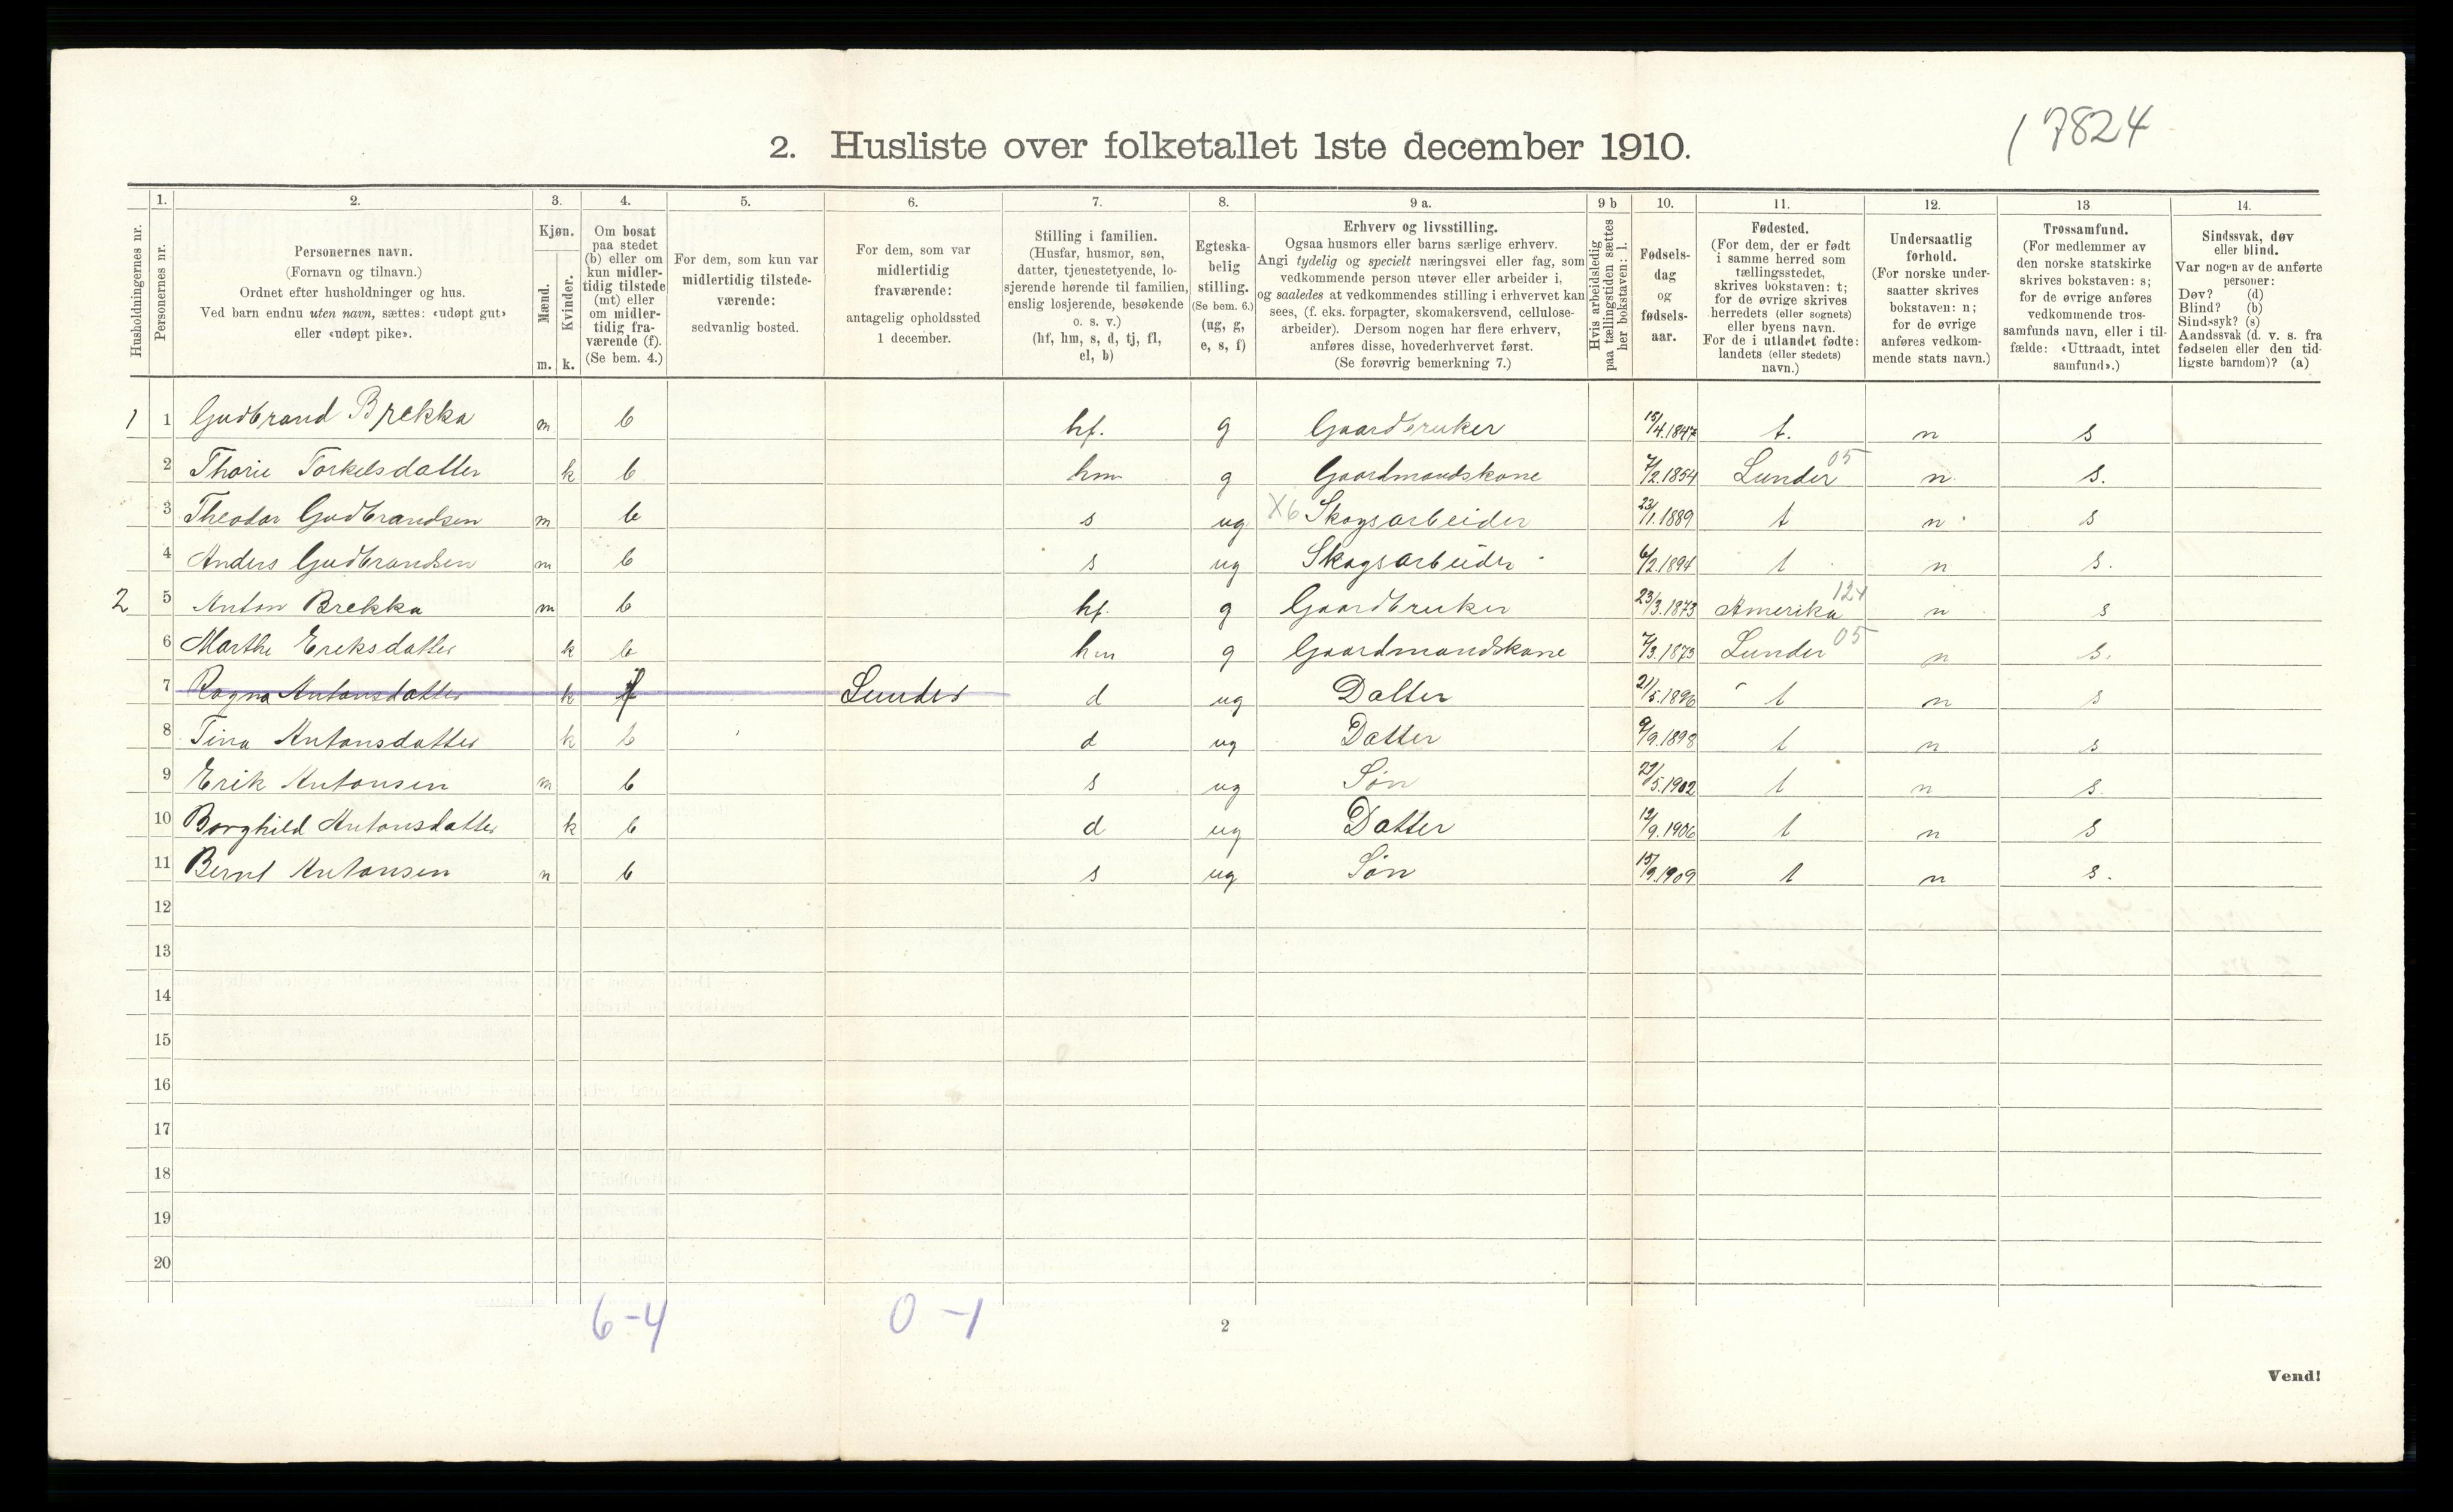 2. Husliste over folketallet 1ste december 1910.
17824
Husholdningernes nr.
1. Personernes nr.
2. Personernes navn.
(Fornavn og tilnavn.)
Ordnet efter husholdninger og hus.
Ved barn endnu uten navn, sættes: «udøpt gut»
eller «udøpt pike».
3. Kjøn.
Mænd. Kvinder.
m. k.
4. Om bosat
paa stedet
(b) eller om
kun midler-
tidig tilstede
(mt) eller
om midler-
tidig fra-
værende (f).
(Se bem. 4.)
5. For dem, som kun var
midlertidig tilstede-
værende:
sedvanlig bosted.
6. For dem, som var
midlertidig
fraværende:
antagelig opholdssted
1 december.
7. Stilling i familien.
(Husfar, husmor, søn,
datter, tjenestetyende, lo-
sjerende hørende til familien,
enslig losjerende, besøkende
o. s. v.)
(hf, hm, s, d, tj, fl,
el, b)
8. Egteska-
belig
stilling.
(Se bem. 6.)
(ug, g,
e, s, f)
9 a. Erhverv og livsstilling.
Ogsaa husmors eller barns særlige erhverv.
Angi tydelig og specielt næringsvei eller fag, som
vedkommende person utøver eller arbeider i,
og saaledes at vedkommendes stilling i erhvervet kan
sees, (f. eks. forpagter, skomakersvend, cellulose-
arbeider). Dersom nogen har flere erhverv,
anføres disse, hovederhvervet først.
(Se forøvrig bemerkning 7.)
9 b Hvis arbeidsledig
paa tællingstiden sættes
her bokstaven: l.
10. Fødsels-
dag
og
fødsels-
aar.
11. Fødested.
(For dem, der er født
i samme herred som
tællingsstedet,
skrives bokstaven: t;
for de øvrige skrives
herredets (eller sognets)
eller byens navn.
For de i utlandet fødte:
landets (eller stedets)
navn.)
12. Undersaatlig
forhold.
(For norske under-
saatter skrives
bokstaven: n;
for de øvrige
anføres vedkom-
mende stats navn.)
13 Trossamfund.
(For medlemmer av
den norske statskirke
skrives bokstaven: s;
for de øvrige anføres
vedkommende tros-
samfunds navn, eller i til-
fælde: «Uttraadt, intet
samfund».)
14. Sindssvak, døv
eller blind.
Var nogen av de anførte
personer:
Døv? (d)
Blind? (b)
Sindssyk? (s)
Aandssvak (d. v. s. fra
fødselen eller den tid-
ligste barndom)? (a)
1 1 Gudbrand Brekka m b hf. g Gaardbruker 15/4.1847 t. n s
2 Thorie Torkelsdatter k b hm g Gaardmandskone 7/2.1854 Lunder 05 n s.
3 Theodor Gudbrandsen m b s ug X6 Skogsarbeider 23/1.1889 t n s
4 Anders Gudbrandsen m b s ug Skogsarbeider 6/2.1894 t n s.
2 5 Anton Brekka m b hf. g Gaardbruker 23/3.1873 Amerika 124 n s
6 Marthe Eriksdatter k b hm g Gaardmandskone 7/3.1873 Lunder 05 n s.
7 Ragna Antonsdatter k f Lunder d ug Datter 21/5.1896 t n s
8 Tina Antonsdatter k b d ug Datter 9/9.1898 t n s
9 Erik Antonsen m b s ug Søn 29/5.1902 t n s.
10 Borghild Antonsdatter k b d ug Datter 12/9.1906 t n s
11 Bernt Antonsen m b s ug Søn 15/9.1909 t n s.
12
13
14
15
16
17
18
19
20
6-4 0-1
2
Vend!